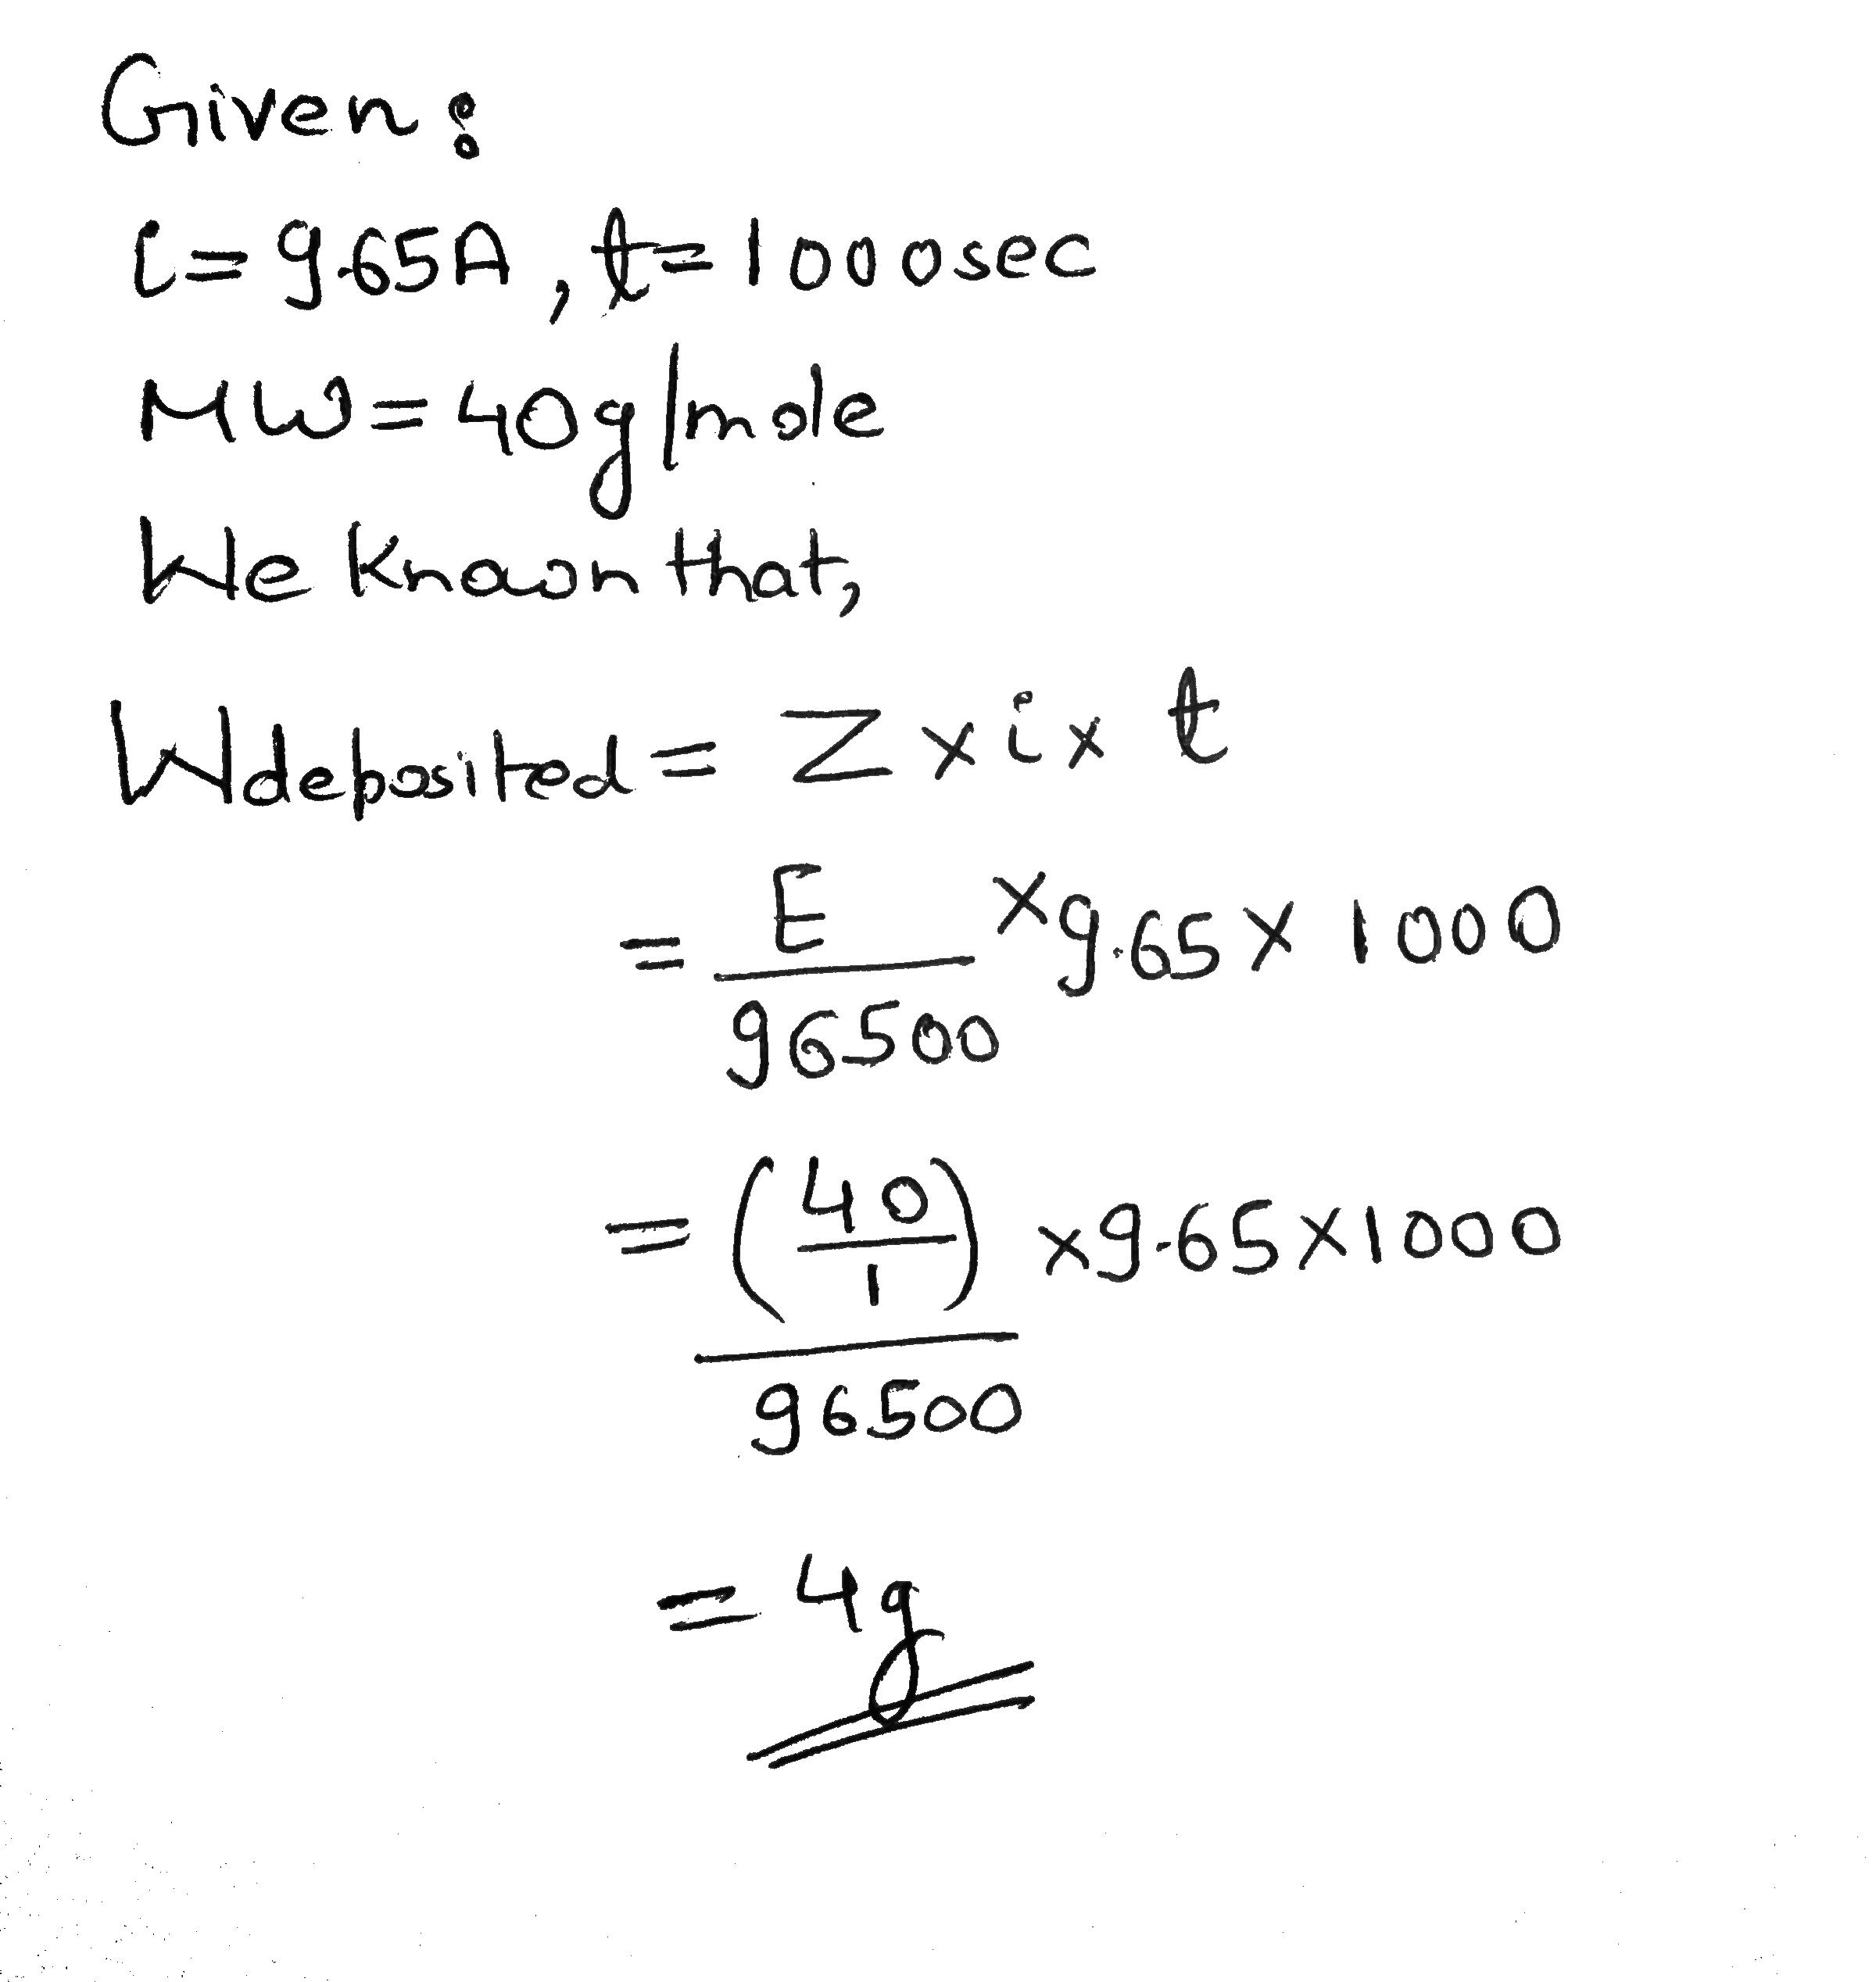 Given:
i=9.65A, t=1000sec
MW=40g/mole
We known that,
Wdeposited = Z x i x t
= E/96500 x 9.65 x 1000
= (40/1)/96500 x 9.65 x 1000
= 4g